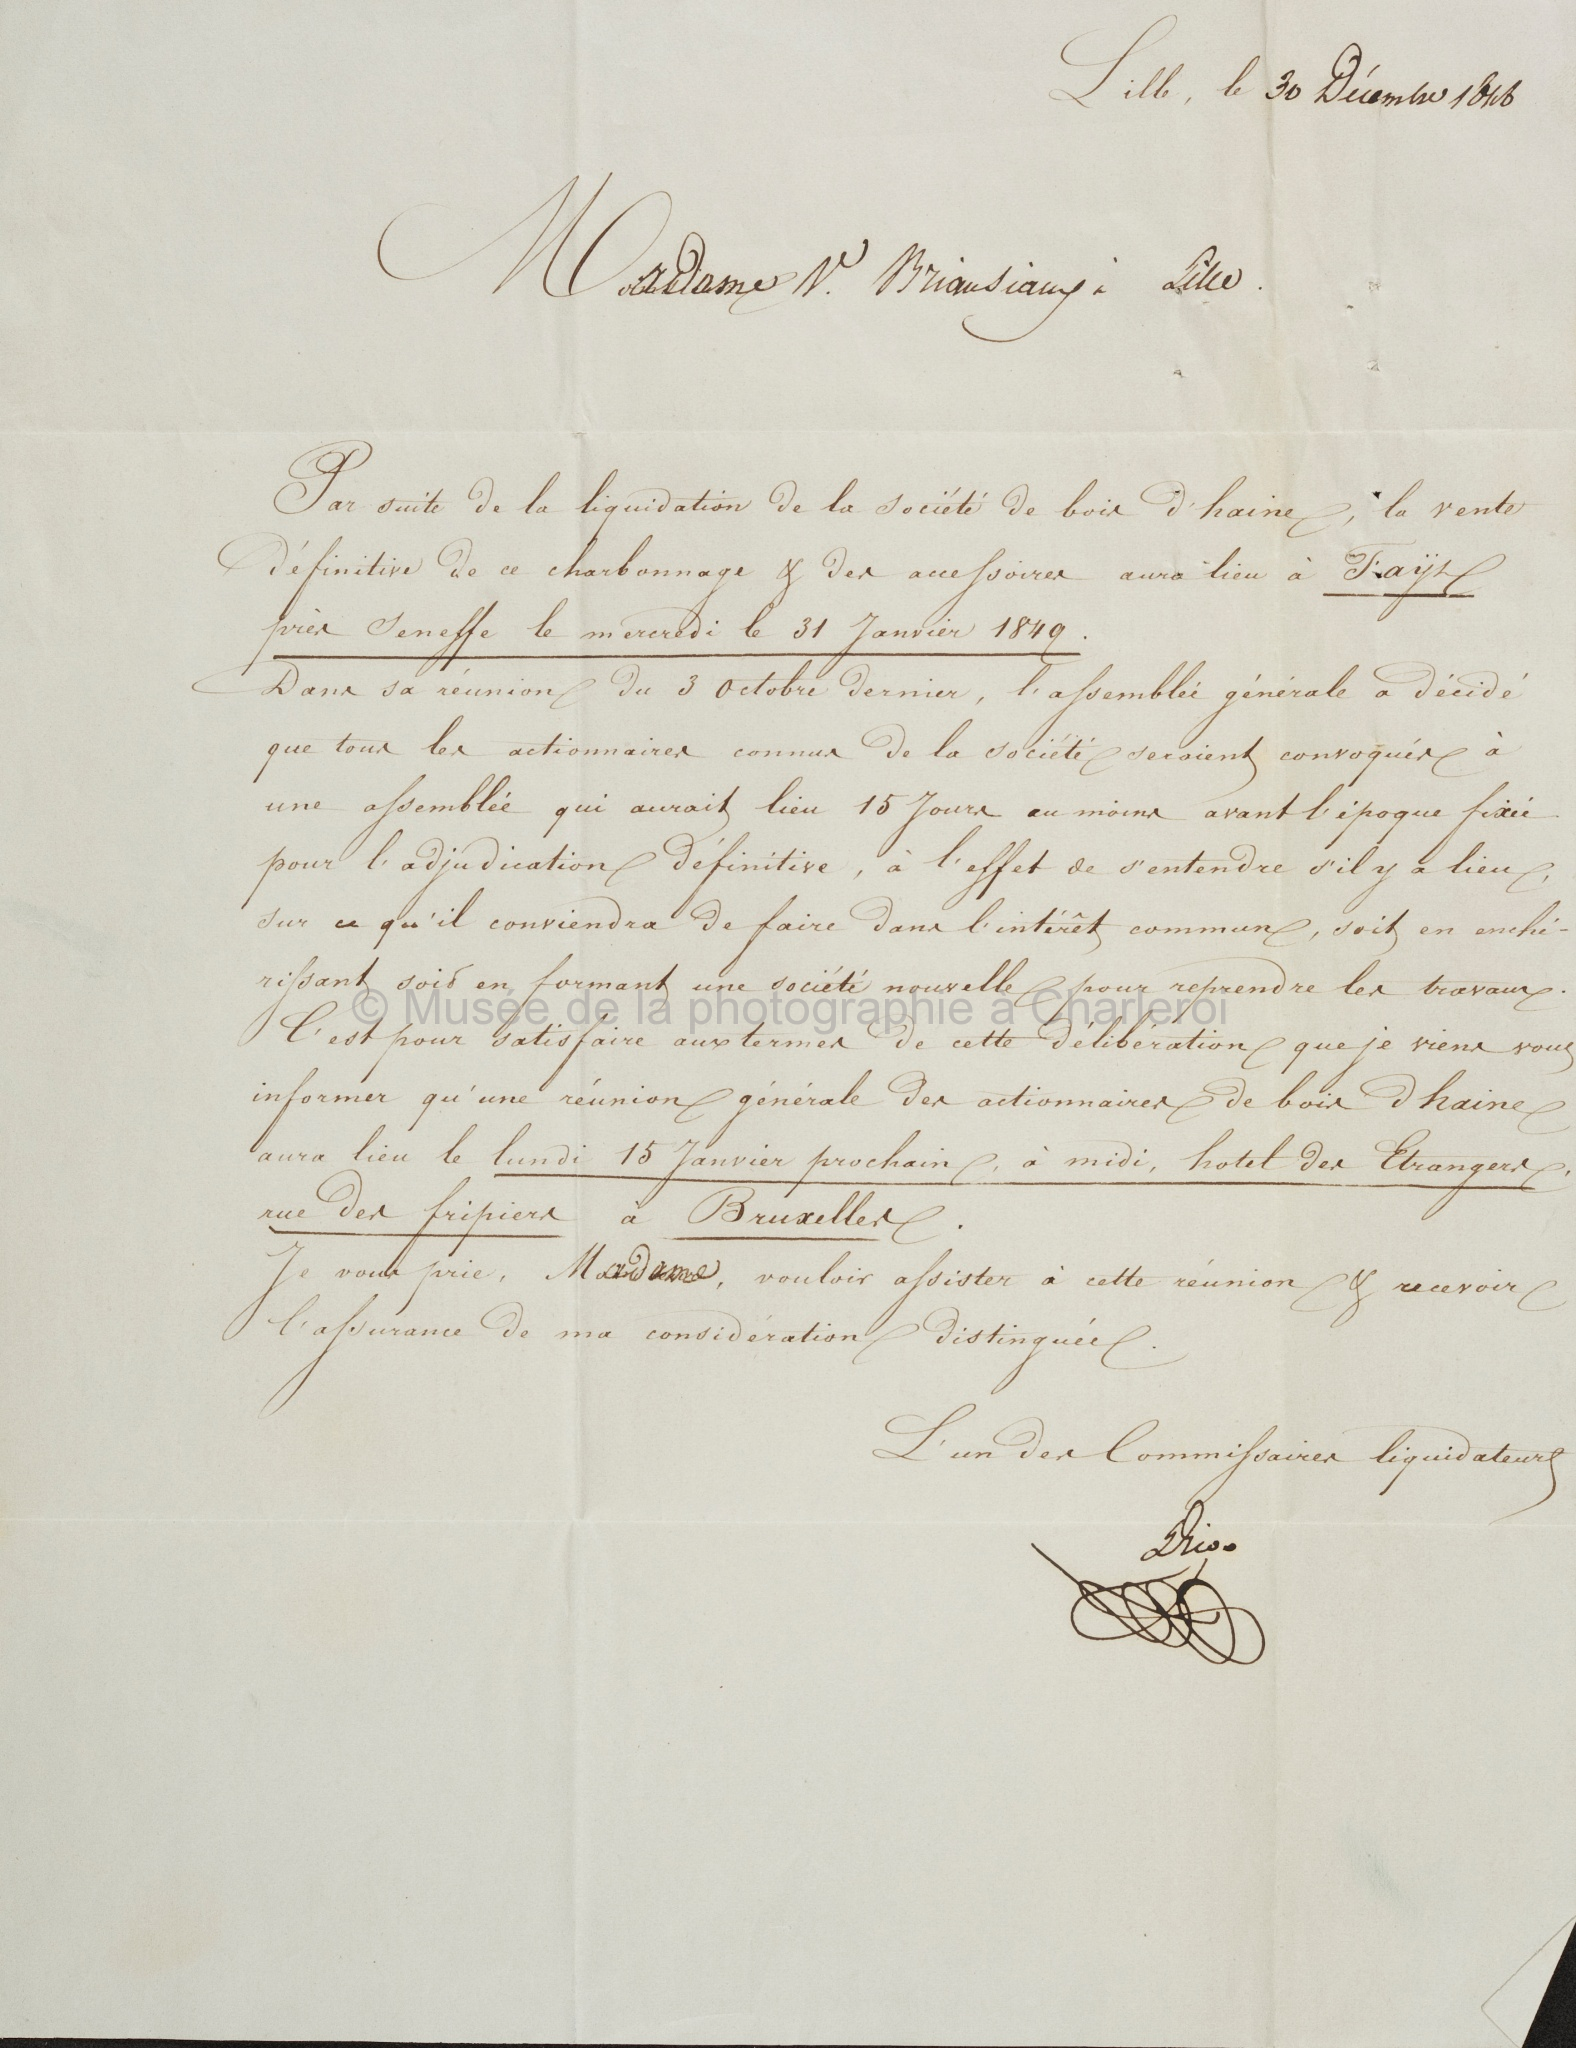 Lille, le 30 Décembre 1848
Madame Ve. Briansiaux à Lille.
Par suite de la liquidation de la société de bois d'haine, la vente
définitive de ce charbonnage & des accessoires aura lieu à Fayt
près Seneffe le mercredi le 31 Janvier 1849.
Dans sa réunion du 3 Octobre dernier, l'assemblée générale a décidé
que tous les actionnaires connus de la société seraient convoqués à
une assemblée qui aurait lieu 15 Jours au moins avant l'époque fixée
pour l'adjudication définitive, à l'effet de s'entendre s'il y a lieu,
sur ce qu'il conviendra de faire dans l'intérêt commun, soit en enché-
rissant soit en formant une société nouvelle pour reprendre les travaux.
C'est pour satisfaire aux termes de cette délibération que je viens vous
informer qu'une réunion générale des actionnaires de bois d'haine
aura lieu le lundi 15 Janvier prochain, à midi, hotel des Etrangers,
rue des fripiers à Bruxelles.
Je vous prie, Madame, vouloir assister à cette réunion & recevoir
l'assurance de ma considération distinguée.
L'un des Commissaires liquidateurs
© Musée de la photographie à Charleroi